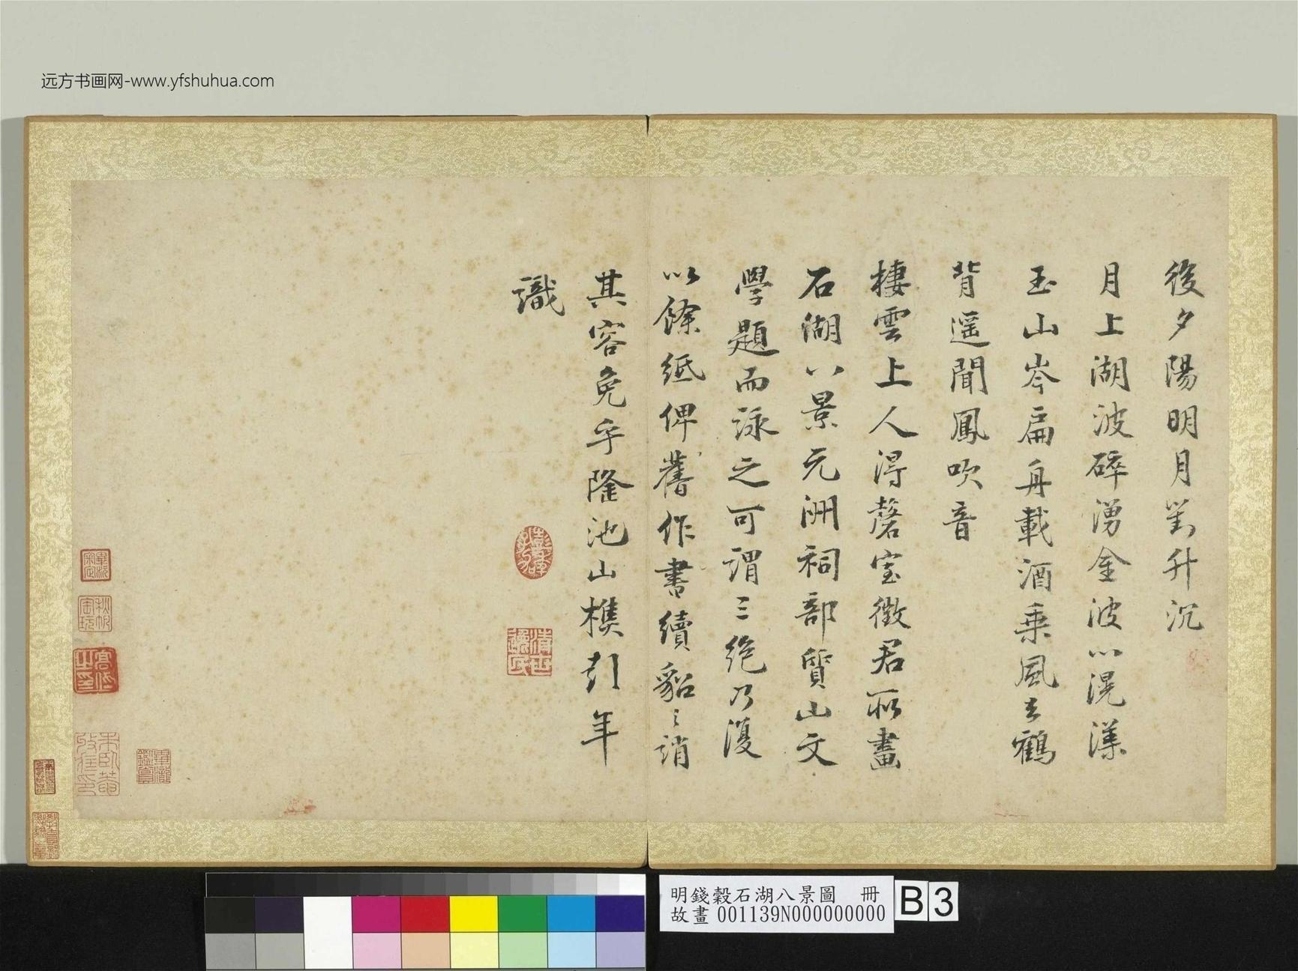 远方书画网-www.yfshuhua.com
後夕陽明月對升沉
月上湖波碎湧金波心滉漾
玉山岑扁舟載酒乘風去鶴
背遥聞鳳吹音
棲雲上人得磬室徵君所畫
石湖八景元洲祠部質山文
學題而詠之可謂三絶乃復
以餘紙俾舊作書續貂貂誚
其容免乎隆池山樵彭年
識
明錢穀石湖八景圖 冊
故畫 001139N000000000
B3